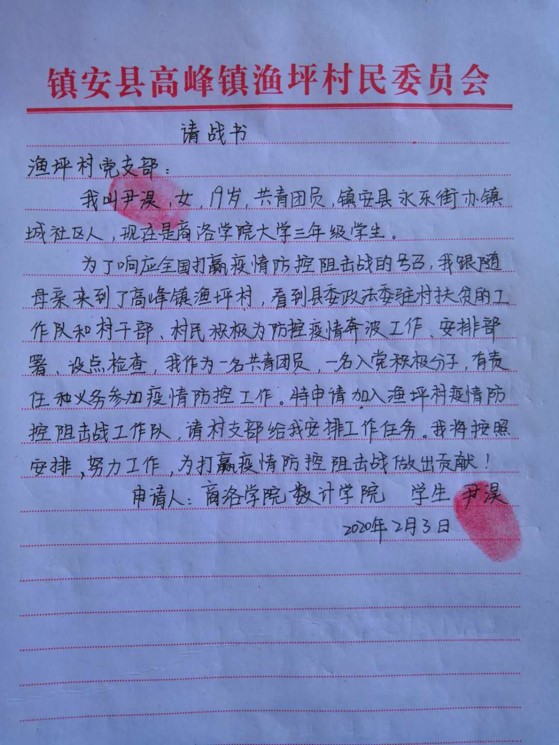 镇安县高峰镇渔坪村民委员会
请战书
渔坪村党支部：
我叫尹淏，女，19岁，共青团员，镇安县永乐街办镇
城社区人，现在是商洛学院大学三年级学生。
为了响应全国打赢疫情防控阻击战的号召，我跟随
母亲来到了高峰镇渔坪村，看到县委政法委驻村扶贫的工
作队和村干部、村民积极为防控疫情奔波工作、安排部
署、设点检查，我作为一名共青团员，一名入党积极分子，有责
任和义务参加疫情防控工作。特申请加入渔坪村疫情防
控阻击战工作队，请村支部给我安排工作任务。我将按照
安排，努力工作，为打赢疫情防控阻击战做出贡献！
申请人：商洛学院数计学院 学生 尹淏
2020年2月3日